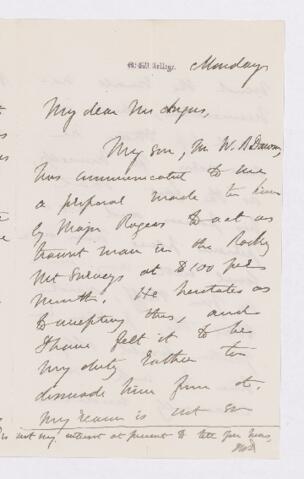 McGill College.
Monday
My dear Mr Angus,
My son, Mr W. B. Dawson,
has communicated to me
a proposal made to him
by Major Rogers to act as
transit man in the Rocky
Mt Surveys at $100 per
month. He hesitates as
to accepting this, and
I have felt it to be
my duty rather to
dissuade him from it.
My reason is not so
is not my interest at present to